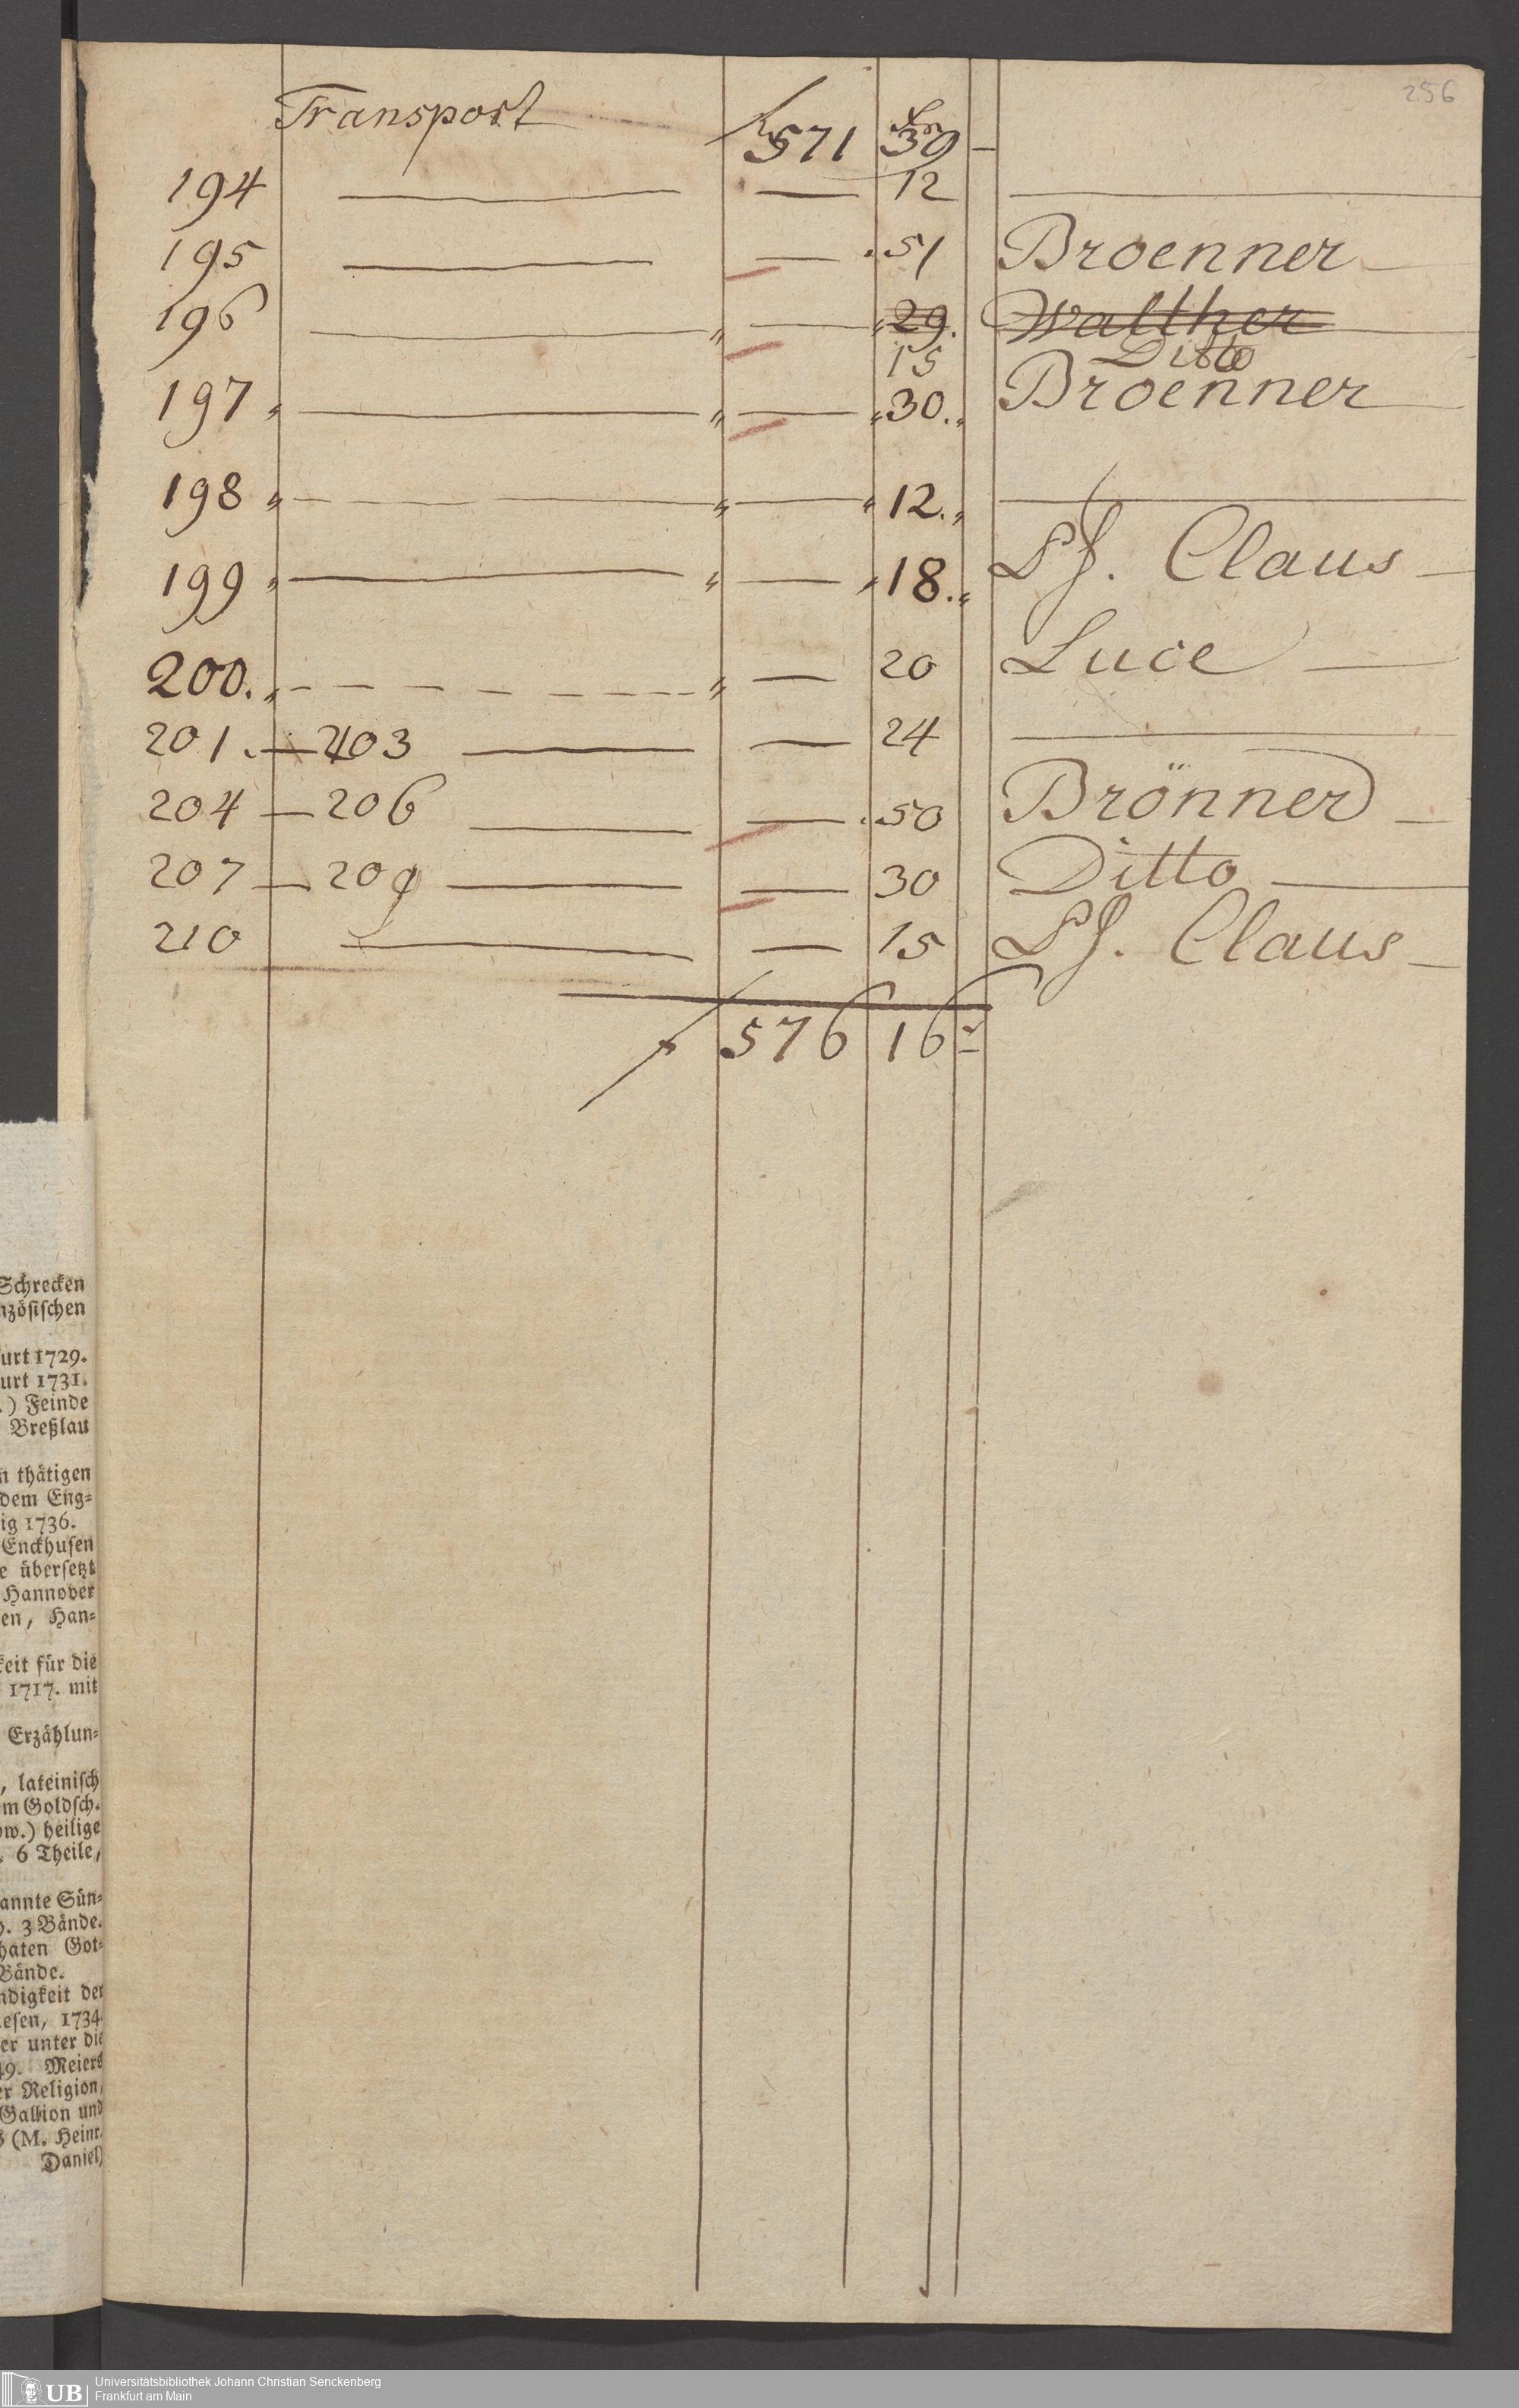 256
Transport f 571 xr 39 —
194 — — 12 —
195 — — 51 Broenner —
196 — — 29. Walther
15 Ditto
197 — — 30. Broenner
198 — — 12. —
199 — — 18. Pf. Claus —
200. — — 20 Luce —
201. — 203 — — 24 —
204 — 206 — — 50 Brönner —
207 — 209 — — 30 Ditto —
210 — — 15 Pf. Claus —
f 576 16 xr
Schrecken
nzösischen
urt 1729.
urt 1731.
.) Feinde
Breßlau
n thätigen
dem Eng=
ig 1736.
Enckhusen
e übersetzt
Hannover
en, Han=
keit für die
1717. mit
Erzählun=
, lateinisch
m Goldsch.
ow.) heilige
. 6 Theile,
annte Sün=
). 3 Bände.
haten Got=
Bände.
ndigkeit der
iesen, 1734
er unter die
49. Meiers
er Religion,
Gallion und
(M. Heinr.
Daniel)
UB Universitätsbibliothek Johann Christian Senckenberg
Frankfurt am Main